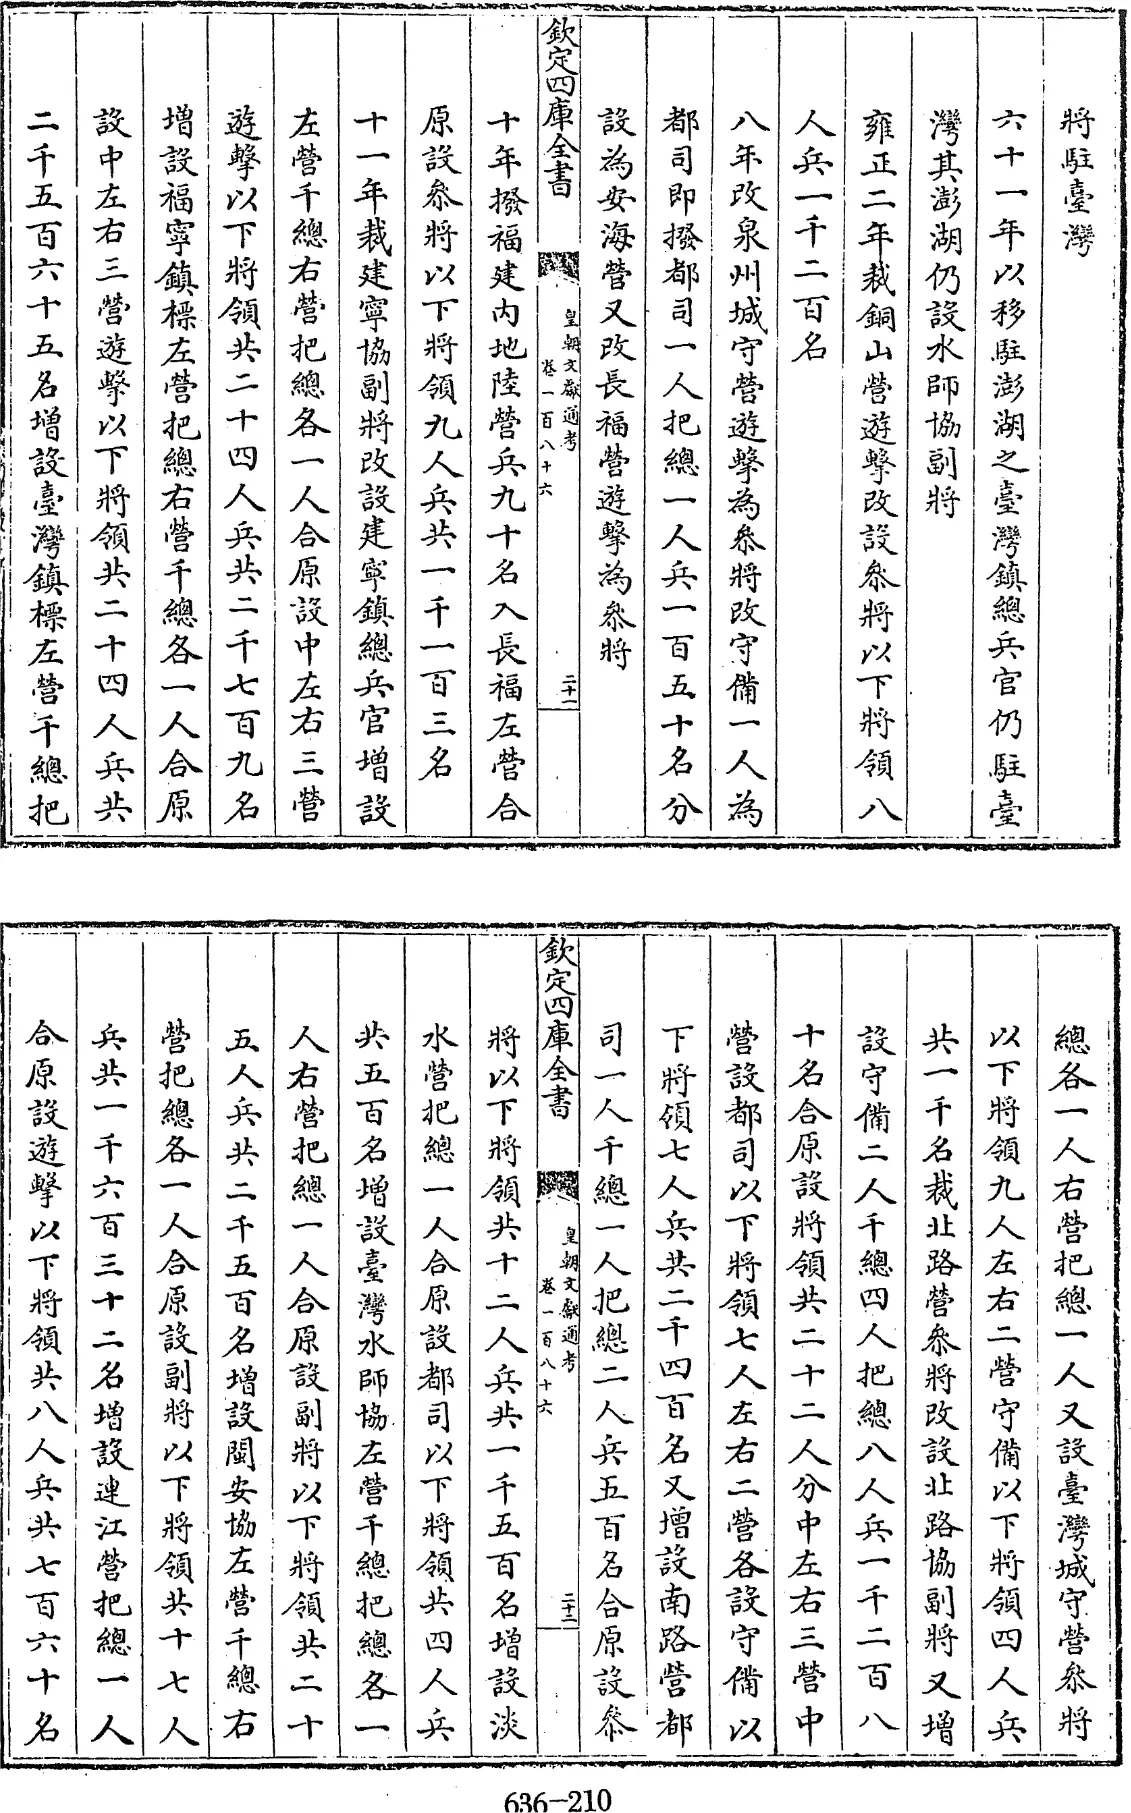 將駐臺灣
六十一年以移駐澎湖之臺灣鎮總兵官仍駐臺
灣其澎湖仍設水師協副將
雍正二年裁銅山營遊擊改設叅將以下將領八
人兵一千二百名
八年改泉州城守營遊擊為叅將改守備一人為
都司即撥都司一人把總一人兵一百五十名分
設為安海營又改長福營遊擊為叅將
欽定四庫全書
皇朝文獻通考
卷一百八十六
二十一
十年撥福建内地陸營兵九十名入長福左營合
原設叅將以下將領九人兵共一千一百三名
十一年裁建寧協副將改設建寧鎮總兵官增設
左營千總右營把總各一人合原設中左右三營
遊擊以下將領共二十四人兵共二千七百九名
增設福寧鎮標左營把總右營千總各一人合原
設中左右三營遊擊以下將領共二十四人兵共
二千五百六十五名增設臺灣鎮標左營千總把
總各一人右營把總一人又設臺灣城守營叅將
以下將領九人左右二營守備以下將領四人兵
共一千名裁北路營叅將改設北路協副將又增
設守備二人千總四人把總八人兵一千二百八
十名合原設將領共二十二人分中左右三營中
營設都司以下將領七人左右二營各設守備以
下將領七人兵共二千四百名又增設南路營都
司一人千總一人把總二人兵五百名合原設叅
欽定四庫全書
皇朝文獻通考
卷一百八十六
二十二
將以下將領共十二人兵共一千五百名增設淡
水營把總一人合原設都司以下將領共四人兵
共五百名增設臺灣水師協左營千總把總各一
人右營把總一人合原設副將以下將領共二十
五人兵共二千五百名增設閩安協左營千總右
營把總各一人合原設副將以下將領共十七人
兵共一千六百三十二名增設連江營把總一人
合原設遊擊以下將領共八人兵共七百六十名
636-210